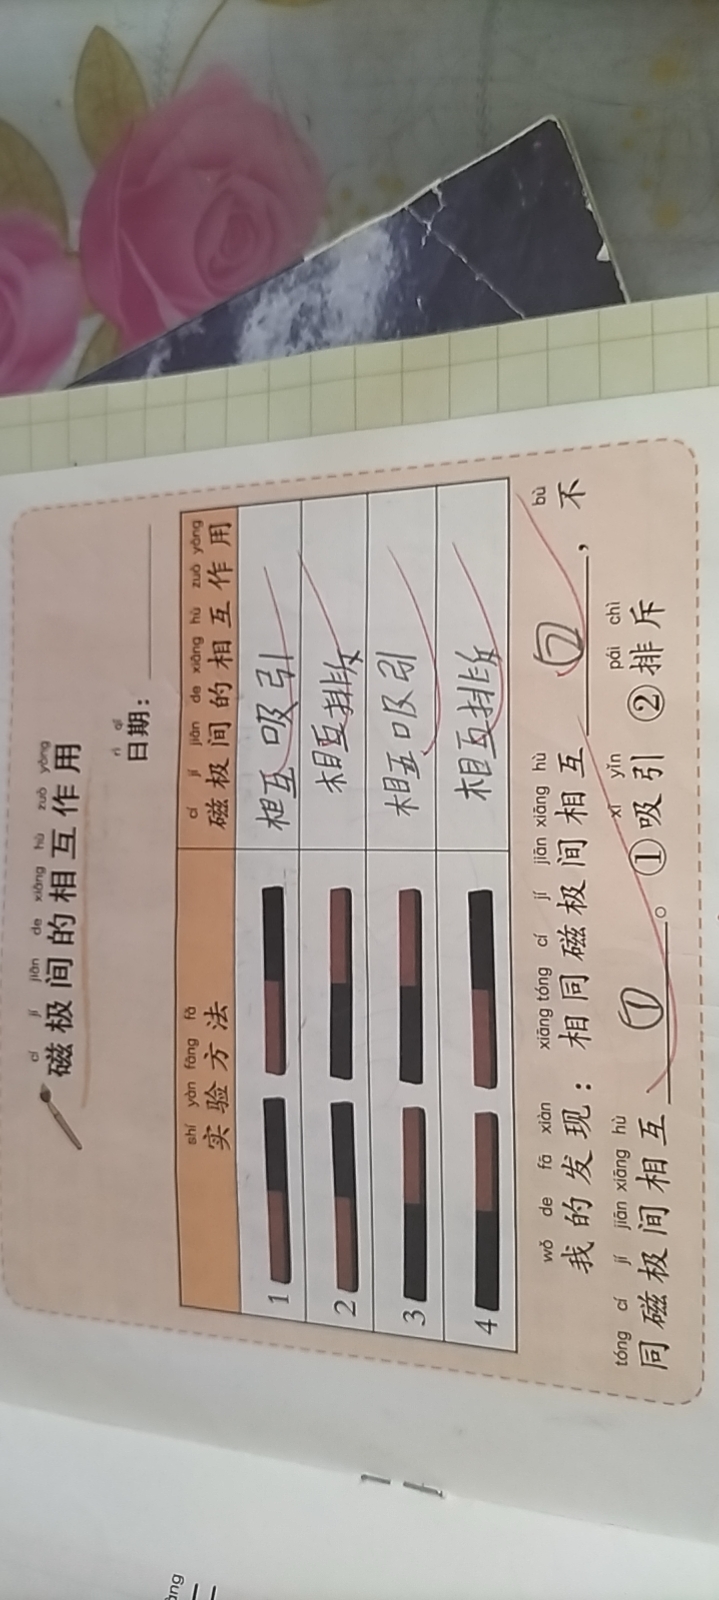 cí jí jiān de xiāng hù zuò yòng
磁极间的相互作用
rì qī
日期：
shí yàn fāng fǎ cí jí jiān de xiāng hù zuò yòng
实验方法 磁极间的相互作用
1 相互吸引
2 相互排斥
3 相互吸引
4 相互排斥
wǒ de fā xiàn xiāng tóng cí jí jiān xiāng hù bù
我的发现：相同磁极间相互②，不
tóng cí jí jiān xiāng hù xī yǐn pái chì
同磁极间相互①。①吸引 ②排斥